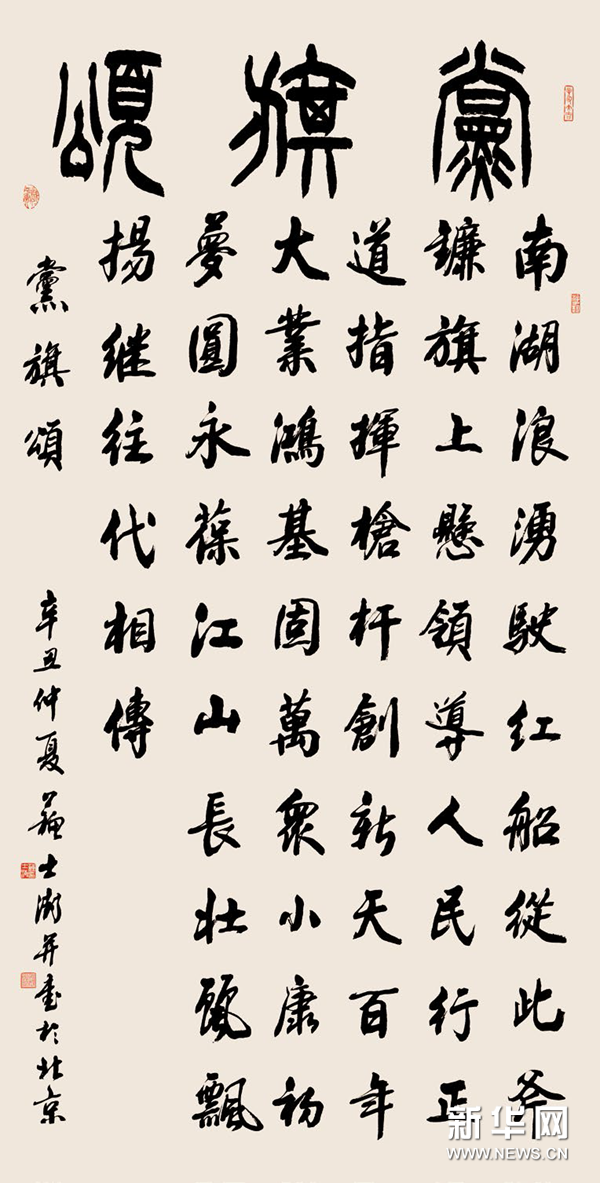 黨旗頌
南湖浪湧駛红船從此斧
鐮旗上懸領導人民行正
道指揮槍杆創新天百年
大業鴻基固萬衆小康初
夢圓永葆江山長壯甄飄
揚继往代相傳
黨旗頌 辛丑仲夏蘇士澍并書於北京
新华网
WWW.NEWS.CN